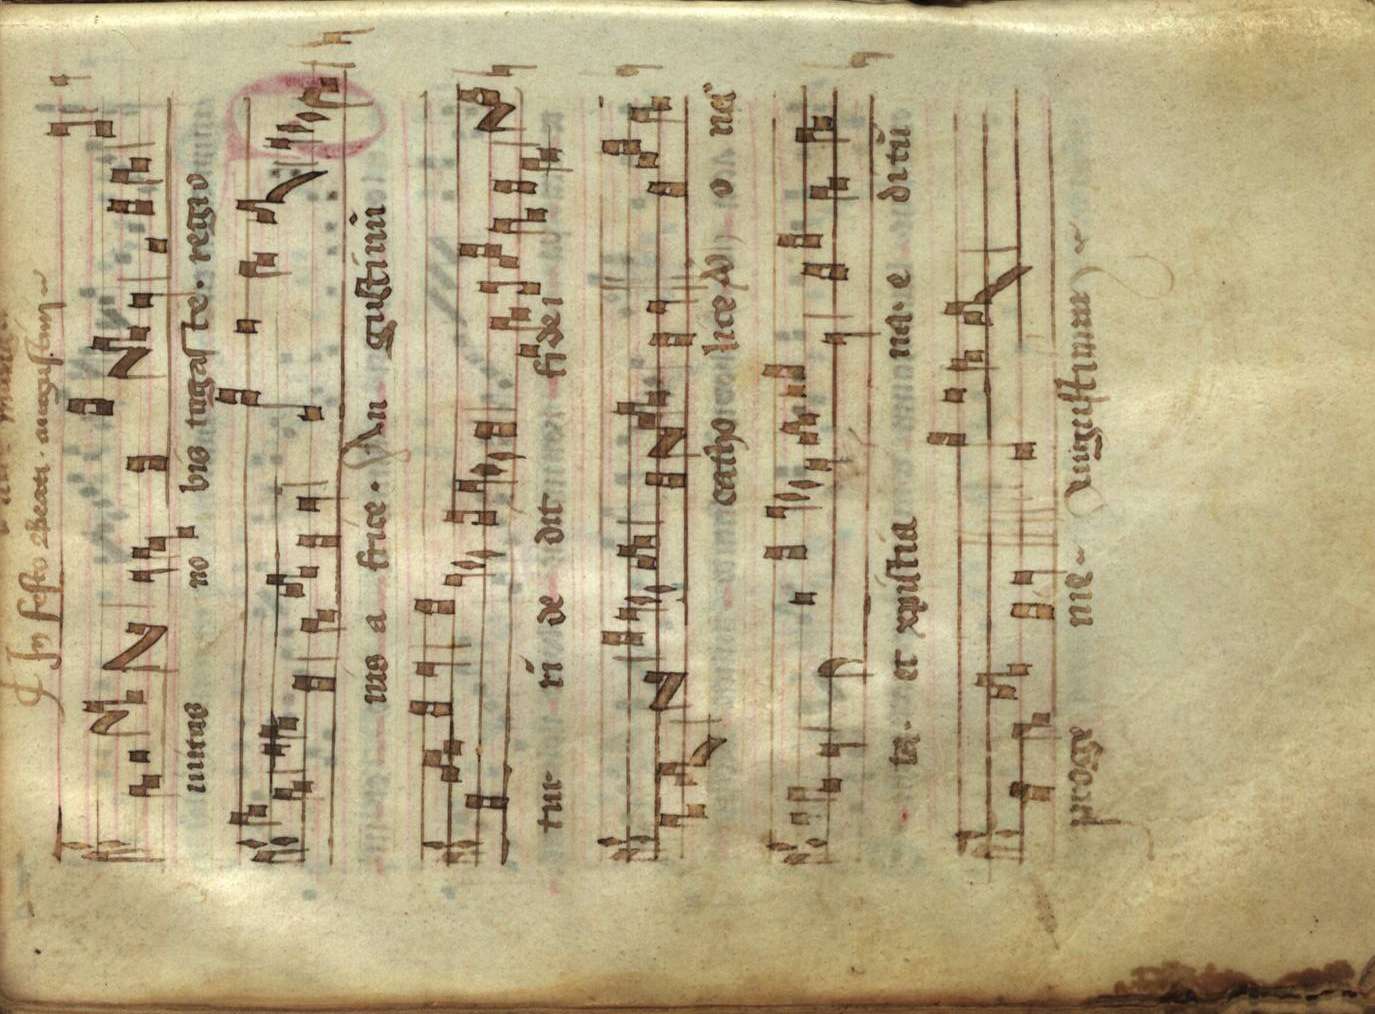 In festo Beati augustini
minus no bis iugas te. regio
nis a frice. Au gustinū
tur ri de dit fi dei
catho lice Ad o nei
ta. et xpistia na. e ditū
proge nie Augustinum